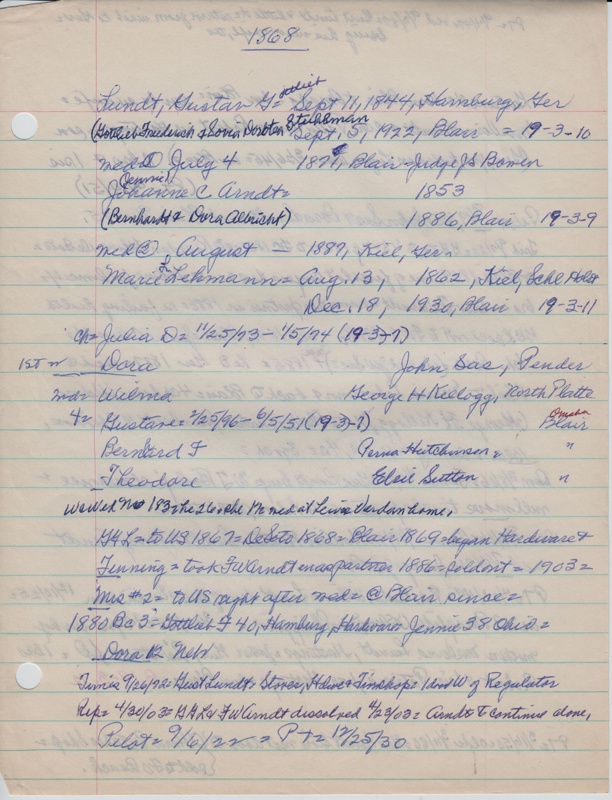 1868
Lundt, Gustav G= Gottlieb Sept 11, 1844, Hamburg, Ger
(Gottlieb Friedrich & Sovia Doroton Stuhlman Sept, 5, 1922, Blair = 19-3-10
med① July 4 1871, Blair - Judge JS Bowen
Johanne (Jennie) C Arndt= 1853
(Bernhardt & Dora Albricht) 1886, Blair 19-3-9
med② August — 1887, Kiel, Ger.
Marie F Lehmann = Aug. 13, 1862, Kiel, Schl Holst
Dec. 18, 1930, Blair 19-3-11
Ch= Julia D= 11/25/73 - 1/5/74 (19-3-7)
1st w Dora John Sas, Pender
md= Wilma George H Kellogg, North Platte
4= Gustave= 2/25/96 - 6/5/51 (19-3-7) Omaha Blair
Bernard F Perna Hutchinson, "
Theodore Elsie Sutton "
he 26 & she med at home,
G H L= to US 1867= DeSoto 1868= Blair 1869= began Hardware &
Tinning= took F W Arndt in as partner 1886= sold out= 1903=
Mrs #2= to US right after med= @ Blair since=
1880 Bc 3= Gottlieb F 40, Hamburg, Hardware Jennie 38 Ohio=
Dora 12 Neb
Times 9/26/72= Gust Lundt= Stoves, Hdwe & Tinshop= 1 door W of Regulator
Rep= 4/30/03= G H L & F W Arndt dissolved 4/23/03= Arndt to continue alone,
Pilot= 9/6/22= P T= 12/25/30